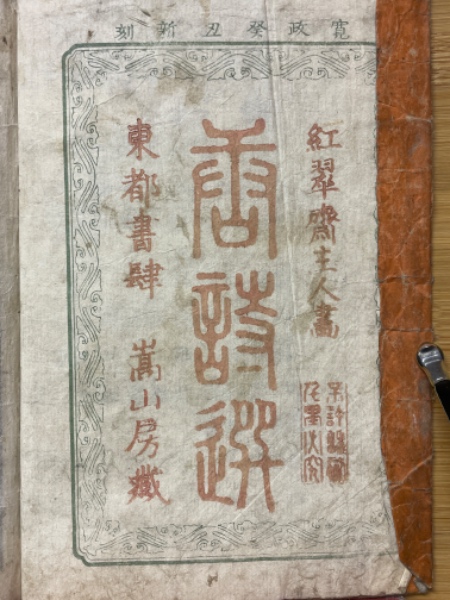 寛政癸丑新刻
紅翠齋主人畫
唐詩選
東都書肆 嵩山房藏